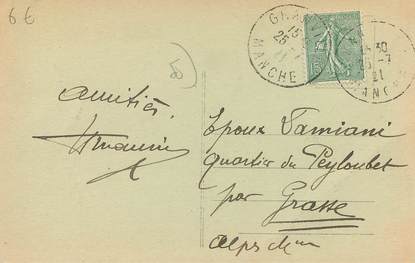 6 €
GRA
15
25
MANCHE
15
30
-7
21
MANCHE
Amitiés
Epoux Damiani
quartier du Peyloubet
par Grasse
Alps Mmes